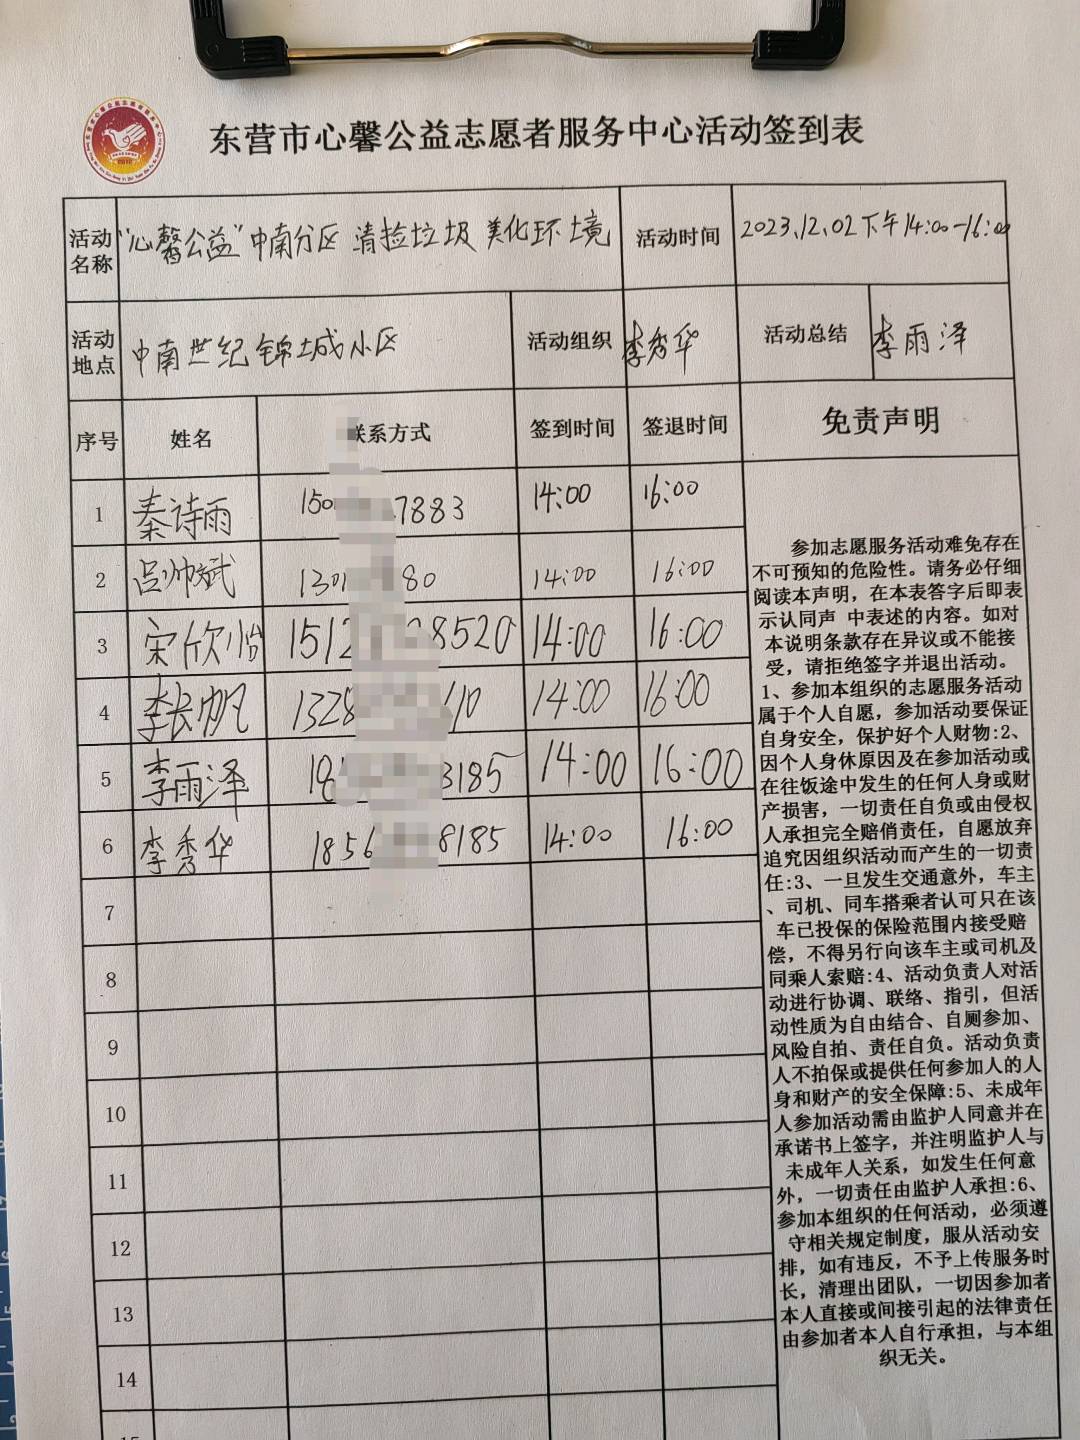 东营市心馨公益志愿者服务中心活动签到表
活动名称 “心馨公益”中南分区 清捡垃圾 美化环境 活动时间 2023.12.02下午14:00-16:00
活动地点 中南世纪锦城小区 活动组织 李秀华 活动总结 李雨泽
序号 姓名 联系方式 签到时间 签退时间 免责声明
1 秦诗雨 150 7883 14:00 16:00
2 吕帅斌 130 80 14:00 16:00
3 宋欣怡 1512 8520 14:00 16:00
4 李长帆 1328 10 14:00 16:00
5 李雨泽 18 3185 14:00 16:00
6 李秀华 1856 8185 14:00 16:00
7
8
9
10
11
12
13
14
15
参加志愿服务活动难免存在
不可预知的危险性。请务必仔细
阅读本声明，在本表签字后即表
示认同声 中表述的内容。如对
本说明条款存在异议或不能接
受，请拒绝签字并退出活动。
1、参加本组织的志愿服务活动
属于个人自愿，参加活动要保证
自身安全，保护好个人财物:2、
因个人身休原因及在参加活动或
在往饭途中发生的任何人身或财
产损害，一切责任自负或由侵权
人承担完全赔俏责任，自愿放弃
追究因组织活动而产生的一切责
任:3、一旦发生交通意外，车主
、司机、同车搭乘者认可只在该
车已投保的保险范围内接受赔
偿，不得另行向该车主或司机及
同乘人索赔:4、活动负责人对活
动进行协调、联络、指引，但活
动性质为自由结合、自厕参加、
风险自拍、责任自负。活动负责
人不拍保或提供任何参加人的人
身和财产的安全保障:5、未成年
人参加活动需由监护人同意并在
承诺书上签字，并注明监护人与
未成年人关系，如发生任何意
外，一切责任由监护人承担:6、
参加本组织的任何活动，必须遵
守相关规定制度，服从活动安
排，如有违反，不予上传服务时
长，清理出团队，一切因参加者
本人直接或间接引起的法律责任
由参加者本人自行承担，与本组
织无关。